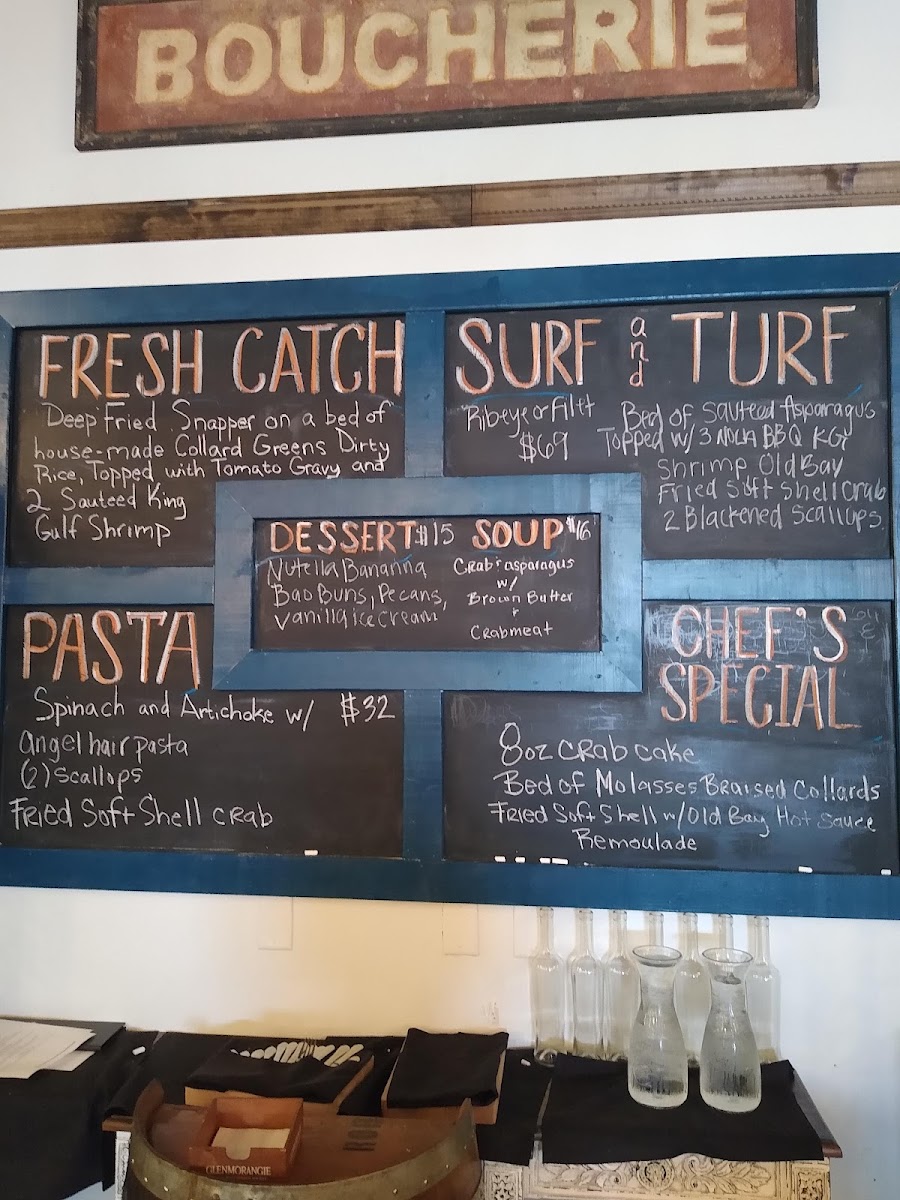 BOUCHERIE
FRESH CATCH
Deep Fried Snapper on a bed of
house-made Collard Greens Dirty
Rice, Topped with Tomato Gravy and
2 Sauteed King
Gulf Shrimp
SURF and TURF
Ribeye or Filet
$69
Bed of Sauteed Asparagus
Topped w/ 3 NOLA BBQ
Shrimp Old Bay
Fried Soft Shell Crab
2 Blackened Scallops
DESSERT $15
Nutella Bananna
Bao Buns, Pecans,
Vanilla ice cream
SOUP $16
Crab & asparagus
w/
Brown Butter
+
Crabmeat
PASTA
Spinach and Artichoke w/ $32
angel hair pasta
(2) Scallops
Fried Soft Shell crab
CHEF'S
SPECIAL
8oz crab cake
Bed of Molasses Braised Collards
Fried Soft Shell w/ Old Bay Hot Sauce
Remoulade
GLENMORANGIE